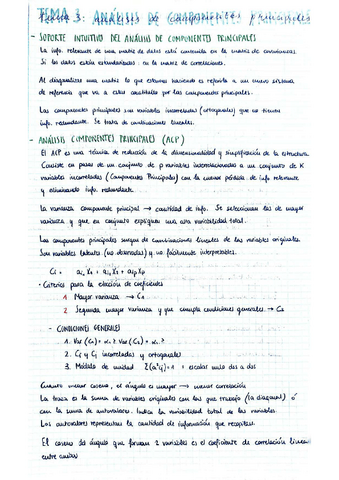 TEMA 3: ANÁLISIS DE componentes principales
- SOPORTE INTUITIVO DEL ANÁLISIS DE COMPONENTES PRINCIPALES
La info. relevante de una matriz de datos está contenida en la matriz de covarianzas.
Si los datos están estandarizados : en la matriz de correlaciones.
Al diagonalizar una matriz lo que estamos haciendo es referirla a un nuevo sistema
de referencia que va a estar constituido por las componentes principales.
Las componentes principales son variables incorreladas (ortogonales) que no tienen
info. redundante. Se trata de combinaciones lineales.
- ANÁLISIS COMPONENTES PRINCIPALES (ACP)
El ACP es una técnica de reducción de la dimensionalidad y simplificación de la estructura.
Consiste en pasar de un conjunto de p variables interrelacionadas a un conjunto de K
variables incorreladas (Componentes Principales) con la menor pérdida de info relevante
y eliminando info. redundante.
La varianza componente principal → cantidad de info. Se seleccionan las de mayor
varianza y que en conjunto expliquen una alta variabilidad total.
Las componentes principales surgen de combinaciones lineales de las variables originales.
Son variables latentes (no observadas) y no fácilmente interpretables.
- Criterios para la elección de coeficientes
1 Mayor varianza → C1
2 Segunda mayor varianza y que cumpla condiciones generales → C2
- CONDICIONES GENERALES
2. Ci y Cj incorreladas y ortogonales
3. Módulo de unidad
Cuanto menor coseno, el ángulo es mayor → menor correlación
La traza es la suma de variables originales con las que trabajo (la diagonal) ó
con la suma de autovalores. Indica la variabilidad total de las variables.
Los autovalores representan la cantidad de información que recopilan.
El coseno del ángulo que forman 2 variables es el coeficiente de correlación lineal
entre ambas